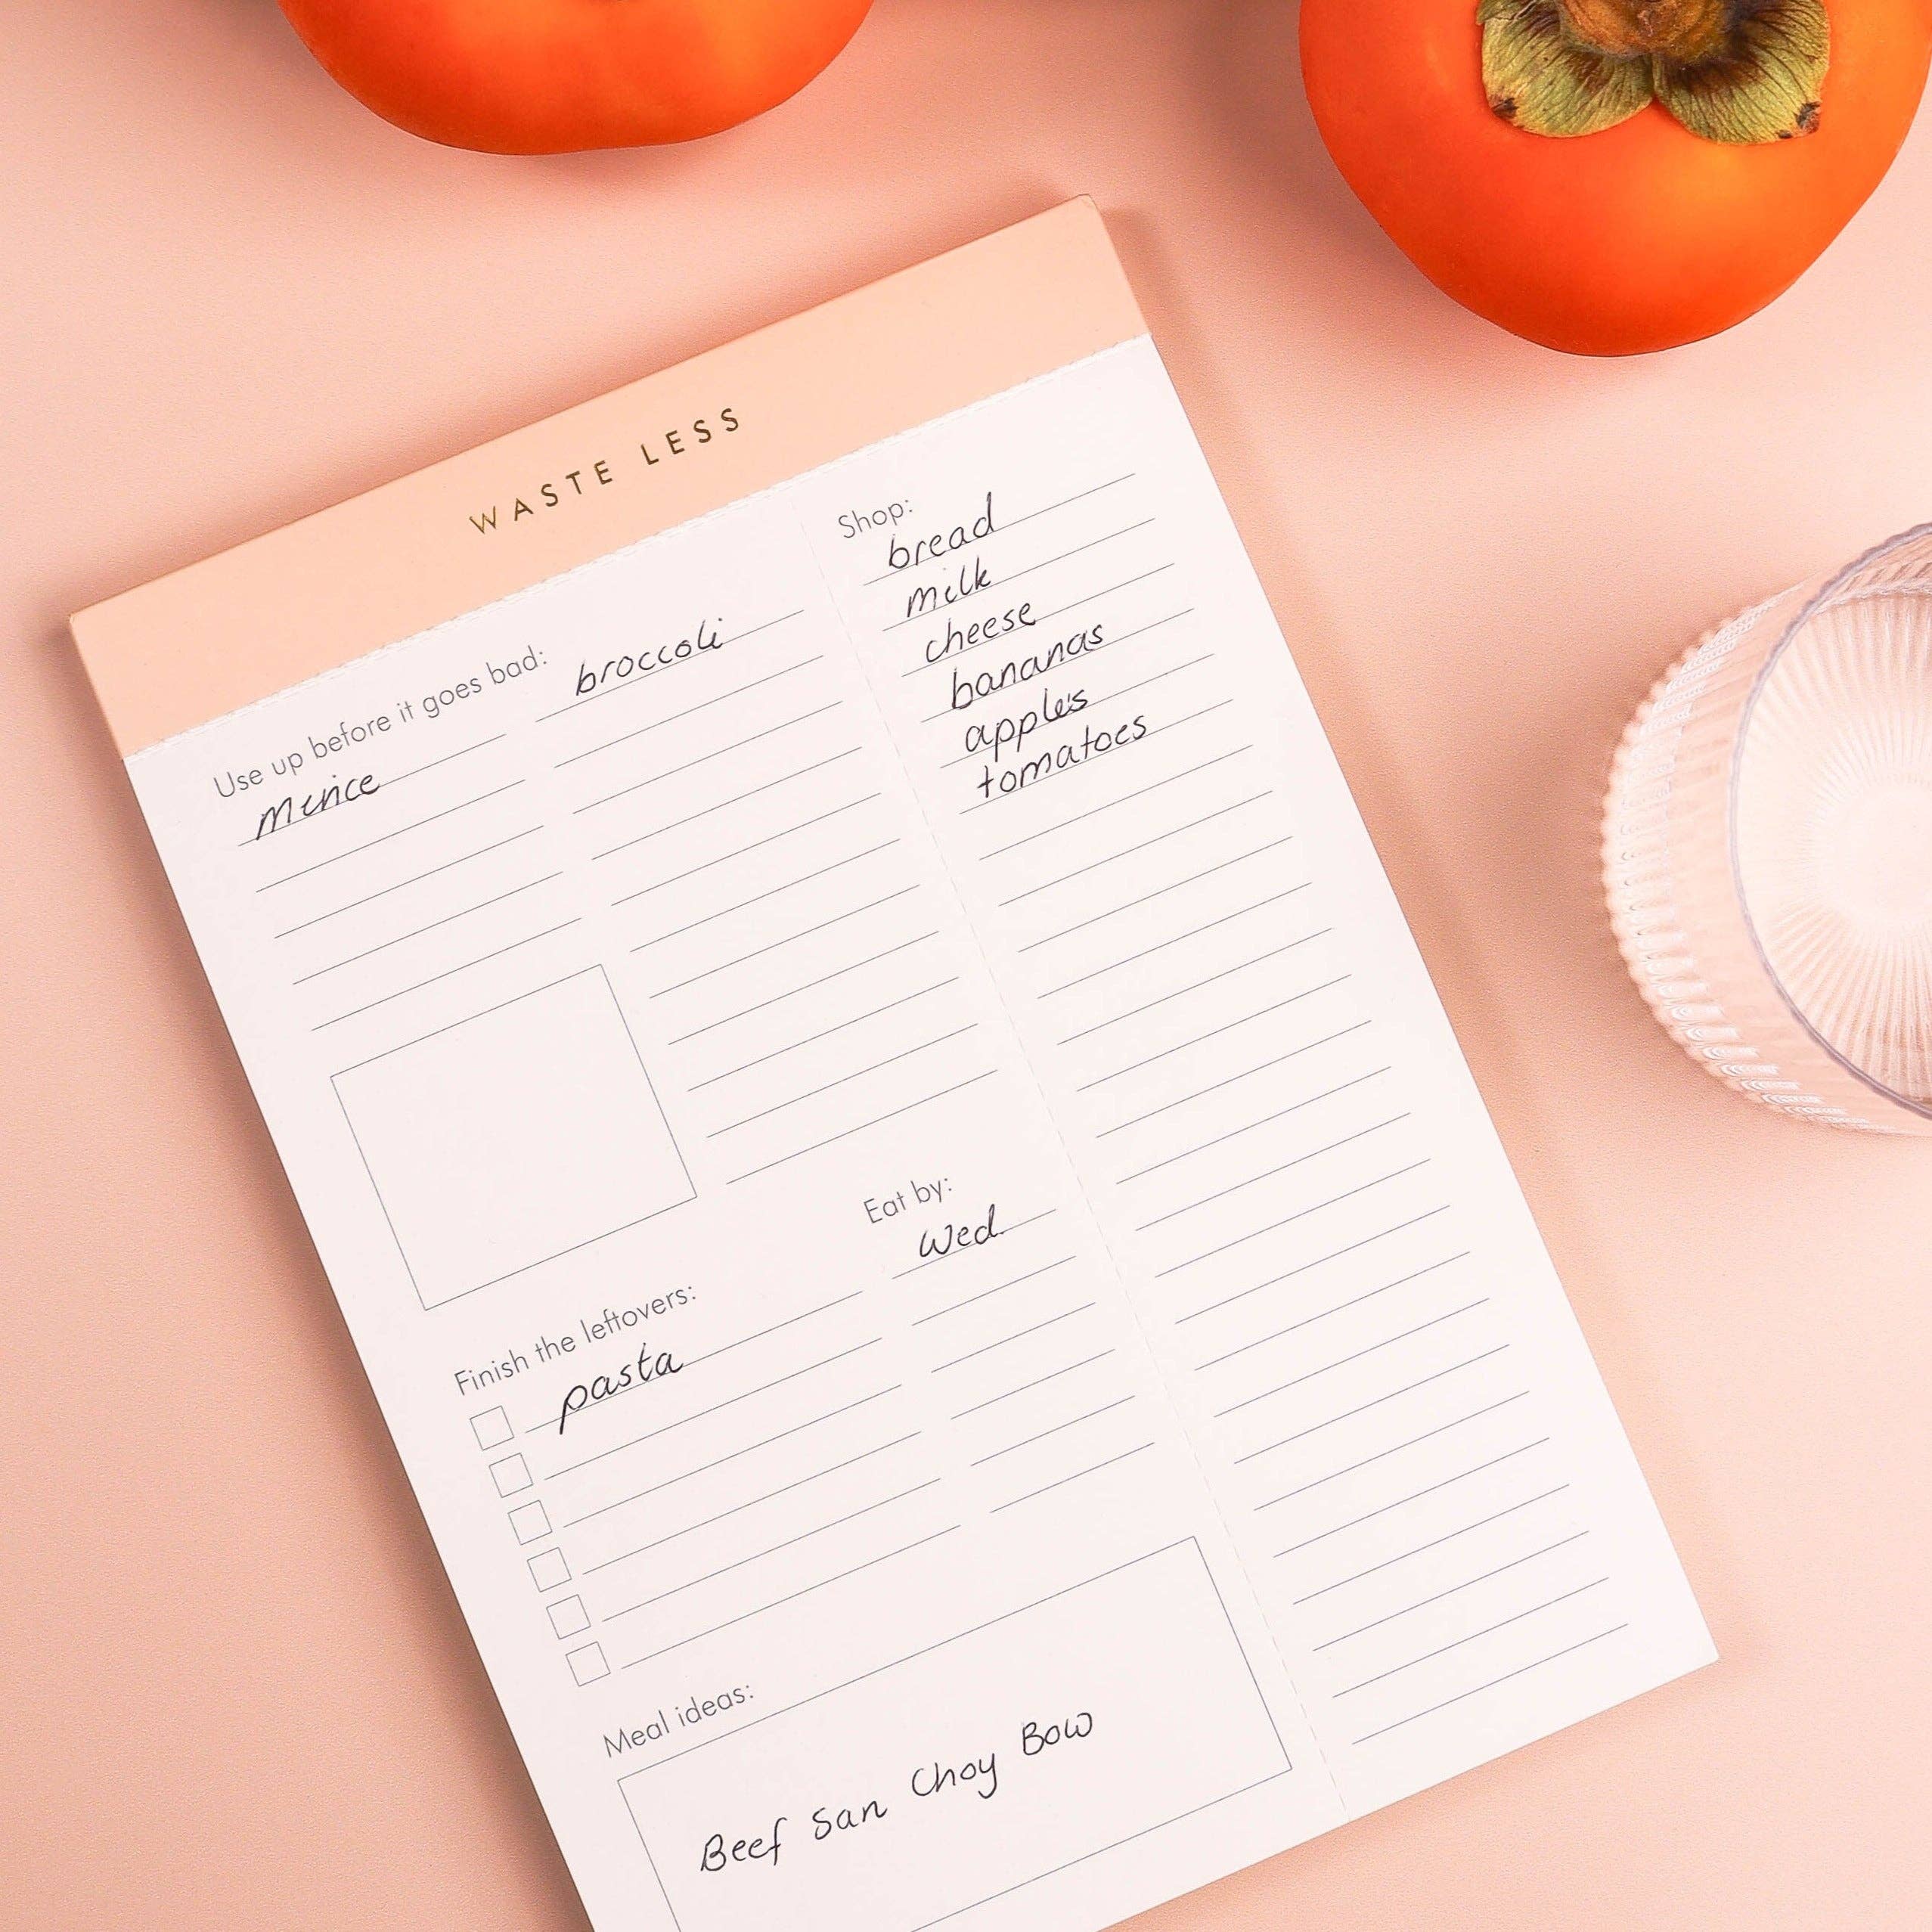 WASTE LESS
Use up before it goes bad:
mince
broccoli
Finish the leftovers:
pasta
Eat by:
Wed.
Meal ideas:
Beef San Choy Bow
Shop:
bread
milk
cheese
bananas
apples
tomatoes